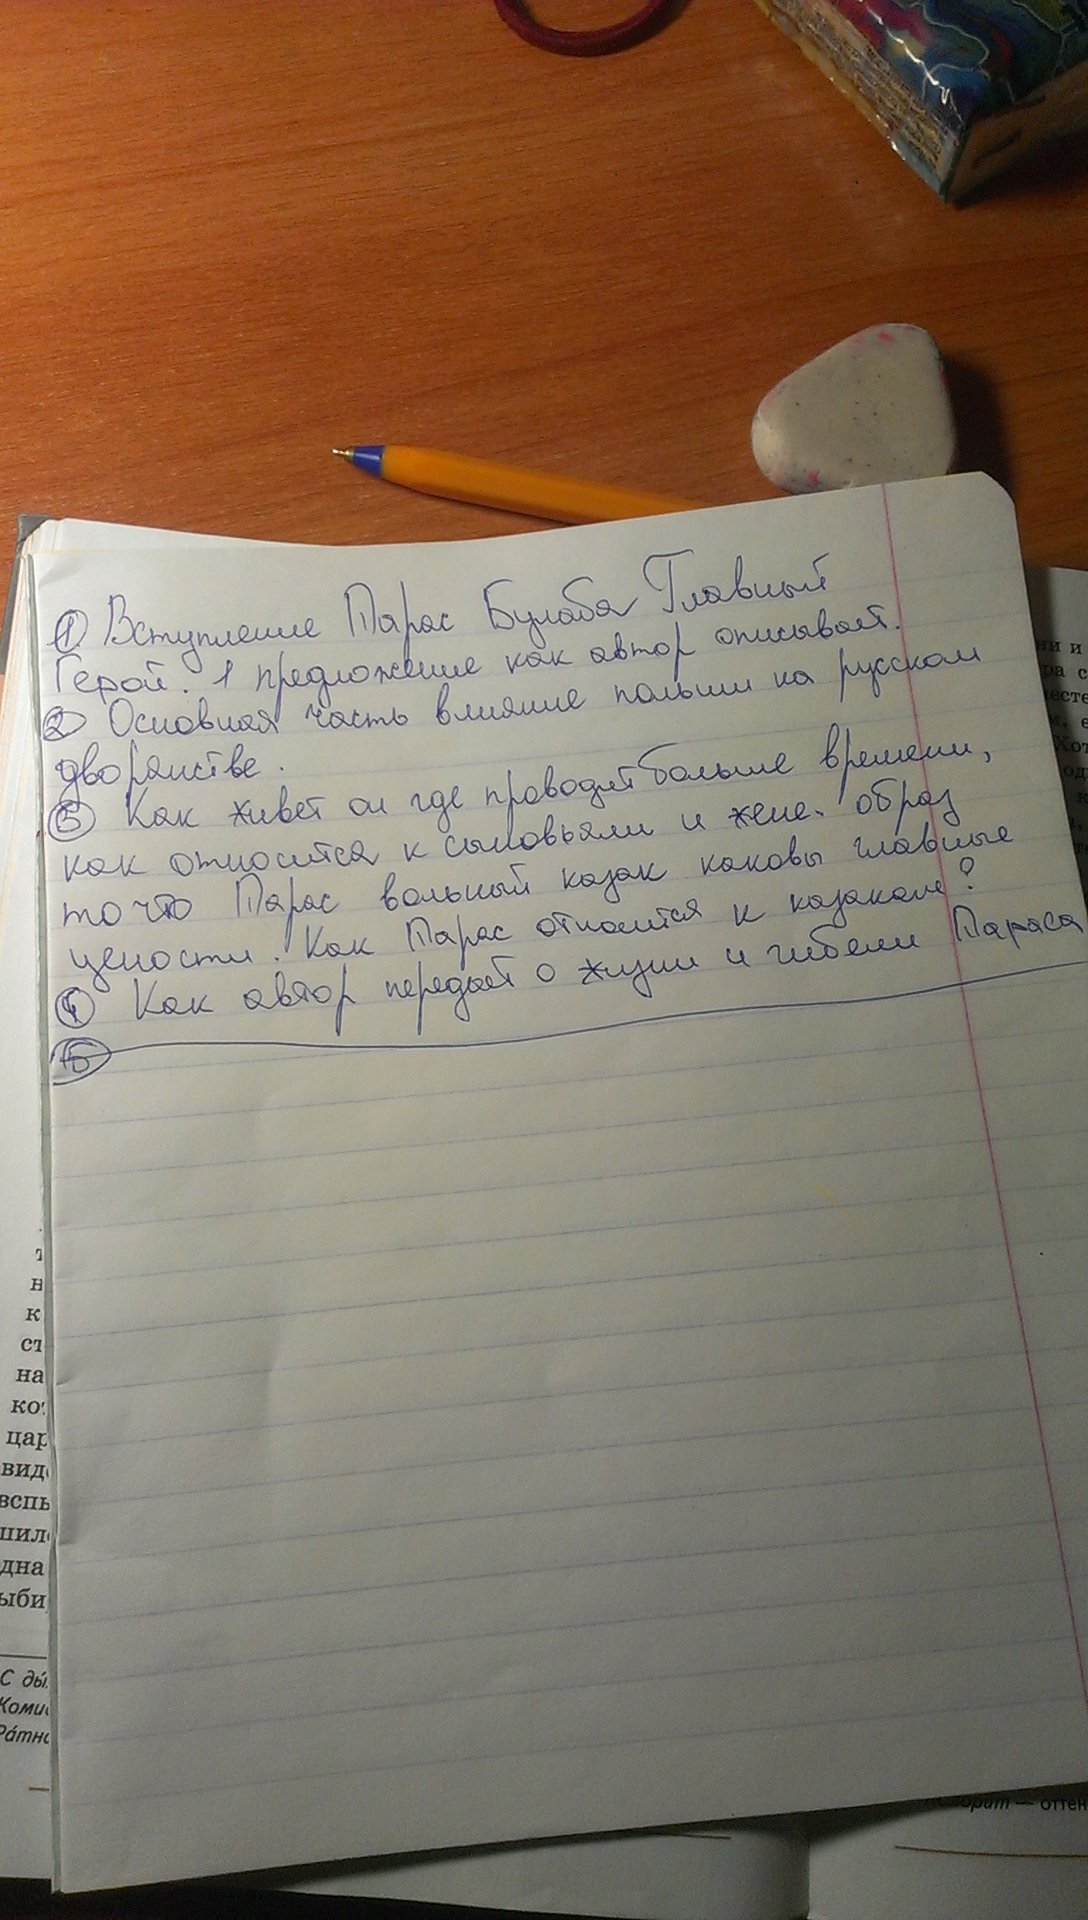 ① Вступление Тарас Бульба Главный
Герой. 1 предложение как автор описывает.
② Основная часть влияние польши на русском
дворянстве.
③ Как живет он где проводит больше времени,
как относится к сыновьям и жене. образ
то что Тарас вольный казак каковы главные
цености. Как Тарас относится к казакам?
④ Как автор передает о жизни и гибели Тараса
⑤
ни и
ра с
Хот
т
н
к
ст
на
ко
цар
вид
вспь
шил
дна
ыби
С ды
Коми
Ра́тн
орит — оттен